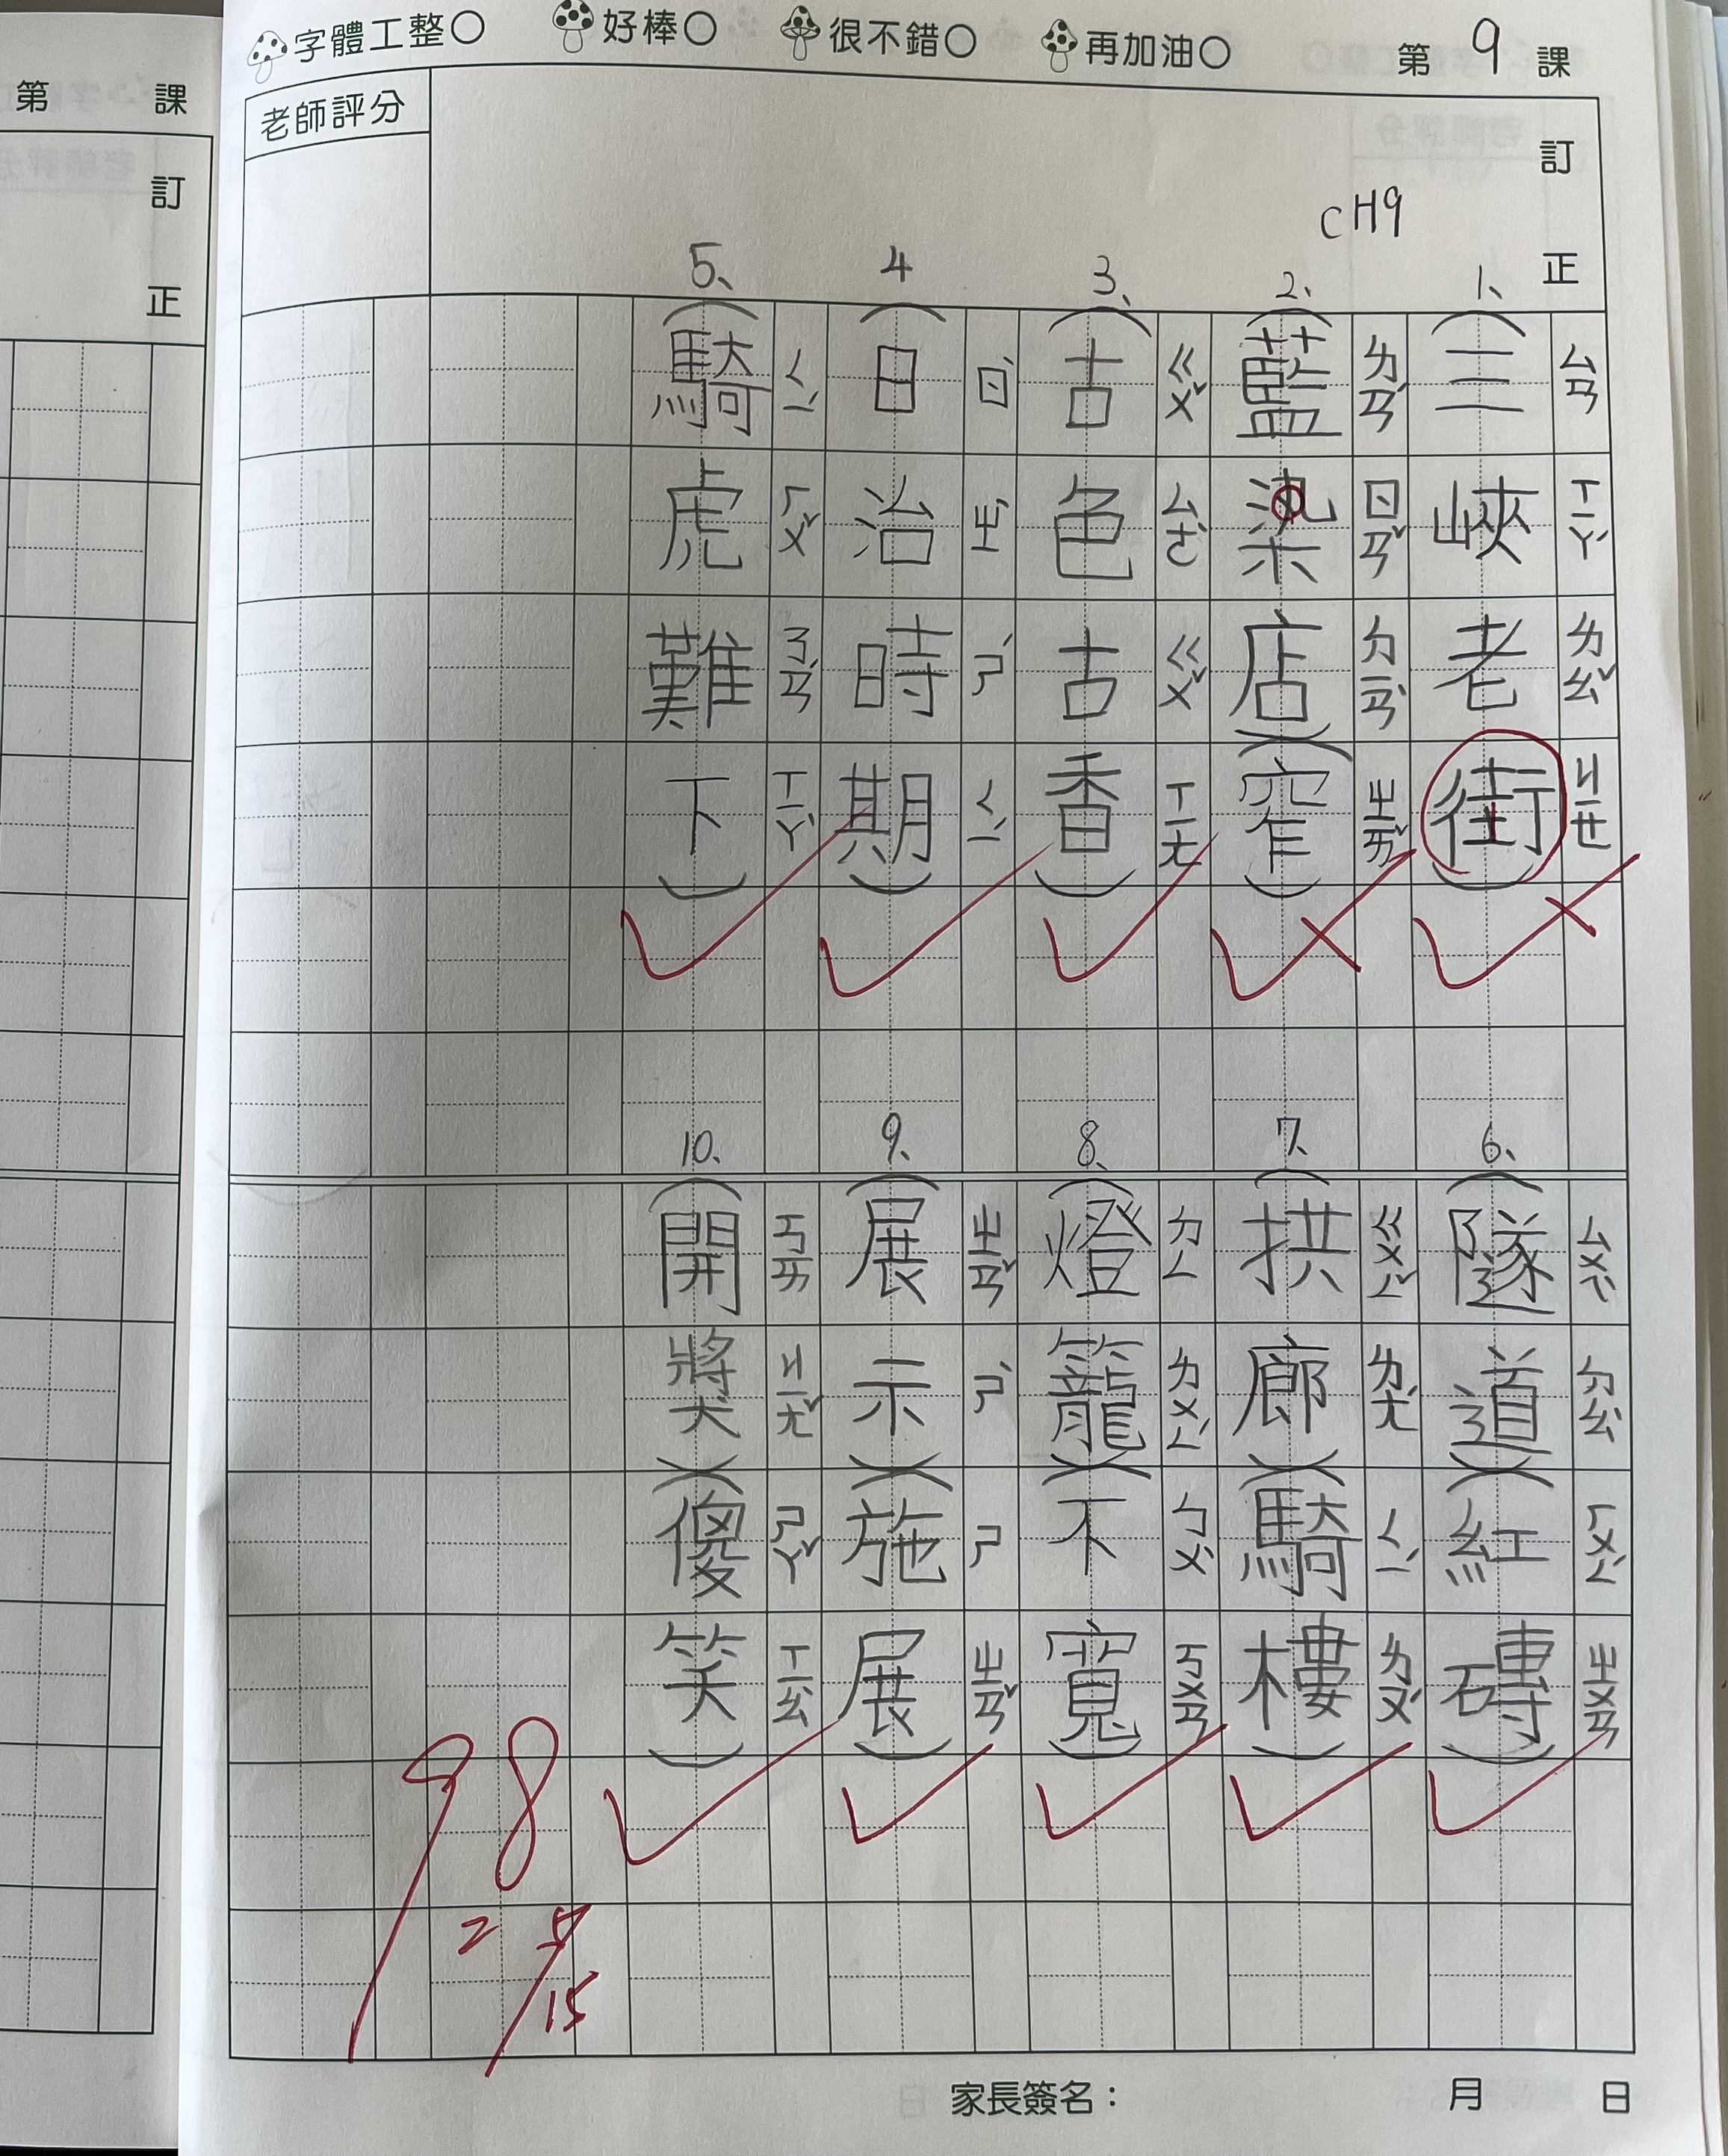 字體工整○ 好棒○ 很不錯○ 再加油○ 第 9 課
老師評分
訂正
CH9
1、(三峽老街) ㄙㄢ ㄒㄧㄚˊ ㄌㄠˇ ㄐㄧㄝ
2、(藍染店)(窄) ㄌㄢˊ ㄖㄢˇ ㄉㄧㄢˋ ㄓㄞˇ
3、(古色古香) ㄍㄨˇ ㄙㄜˋ ㄍㄨˇ ㄒㄧㄤ
4 (日治時期) ㄖˋ ㄓˋ ㄕˊ ㄑㄧˊ
5、(騎虎難下) ㄑㄧˊ ㄏㄨˇ ㄋㄢˊ ㄒㄧㄚˋ
6、(隧道)(紅磚) ㄙㄨㄟˋ ㄉㄠˋ ㄏㄨㄥˊ ㄓㄨㄢ
7、(拱廊)(騎樓) ㄍㄨㄥˇ ㄌㄤˊ ㄑㄧˊ ㄌㄡˊ
8、(燈籠)(不寬) ㄉㄥ ㄌㄨㄥˊ ㄅㄨˋ ㄎㄨㄢ
9、(展示)(施展) ㄓㄢˇ ㄕˋ ㄕ ㄓㄢˇ
10、(開獎)(傻笑) ㄎㄞ ㄐㄧㄤˇ ㄕㄚˇ ㄒㄧㄠˋ
98
2 5/15
家長簽名： 月 日
第 課
訂正